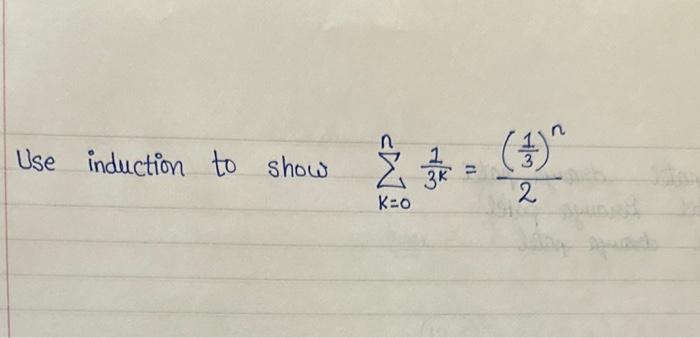 Use induction to show $\sum_{k=0}^{n} \frac{1}{3^k} = \frac{\left(\frac{1}{3}\right)^n}{2}$